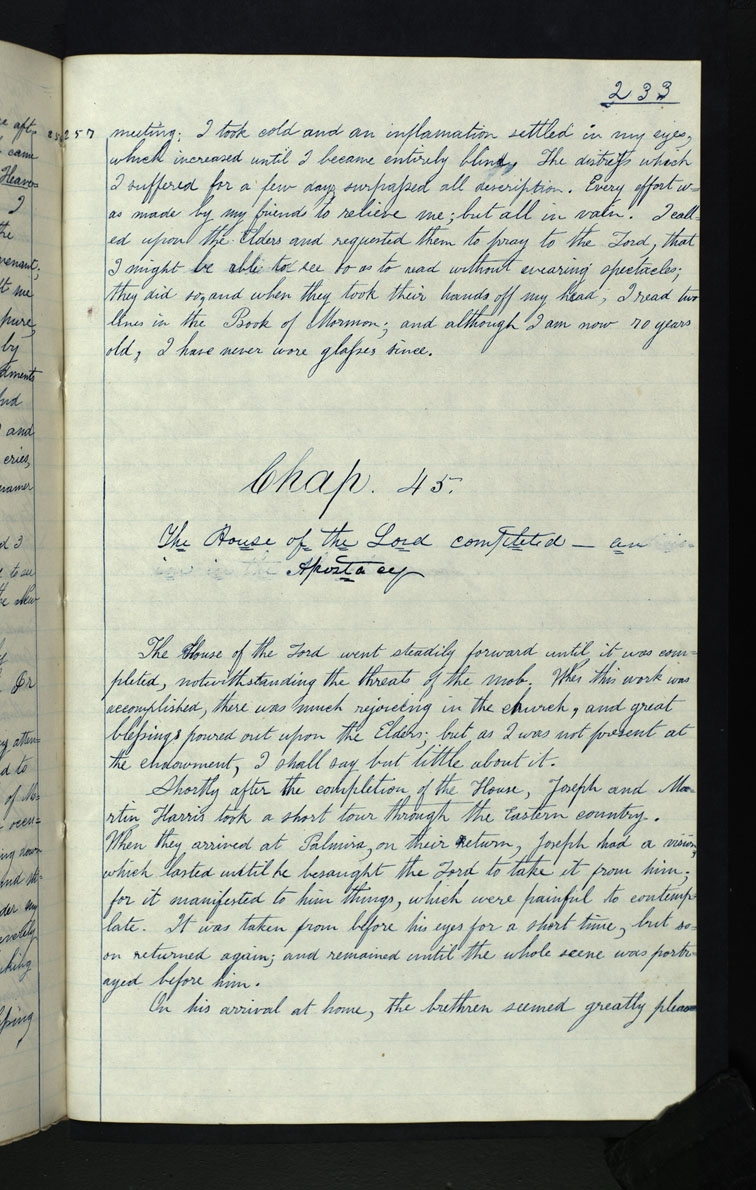 233
257 meeting; I took cold and an inflamation settled in my eyes,
which increased until I became entirely blind, The distress which
I suffered for a few days surpassed all description. Every effort w-
as made by my friends to relieve me; but all in vain. I call-
ed upon the Elders and requested them to pray to the Lord, that
I might be able to see so as to read without wearing spectacles;
they did so, and when they took their hands off my head, I read two
lines in the Book of Mormon; and although I am now 70 years
old, I have never wore glasses since.
Chap. 45.
The House of the Lord completed — an
Apostacy
The House of the Lord went steadily forward until it was com-
pleted, notwithstanding the threats of the mob. When this work was
accomplished, there was much rejoiceing in the church, and great
blessings poured out upon the Elders; but as I was not present at
the endowment, I shall say but little about it.
Shortly after the completion of the House, Joseph and Ma-
rtin Harris took a short tour through the Eastern country.
When they arrived at Palmira, on their return, Joseph had a vision,
which lasted until he besaught the Lord to take it from him;
for it manifested to him things, which were painful to contemp-
late. It was taken from before his eyes for a short time, but so-
on returned again; and remained until the whole scene was portr-
ayed before him.
On his arrival at home, the brethren seemed greatly pleas